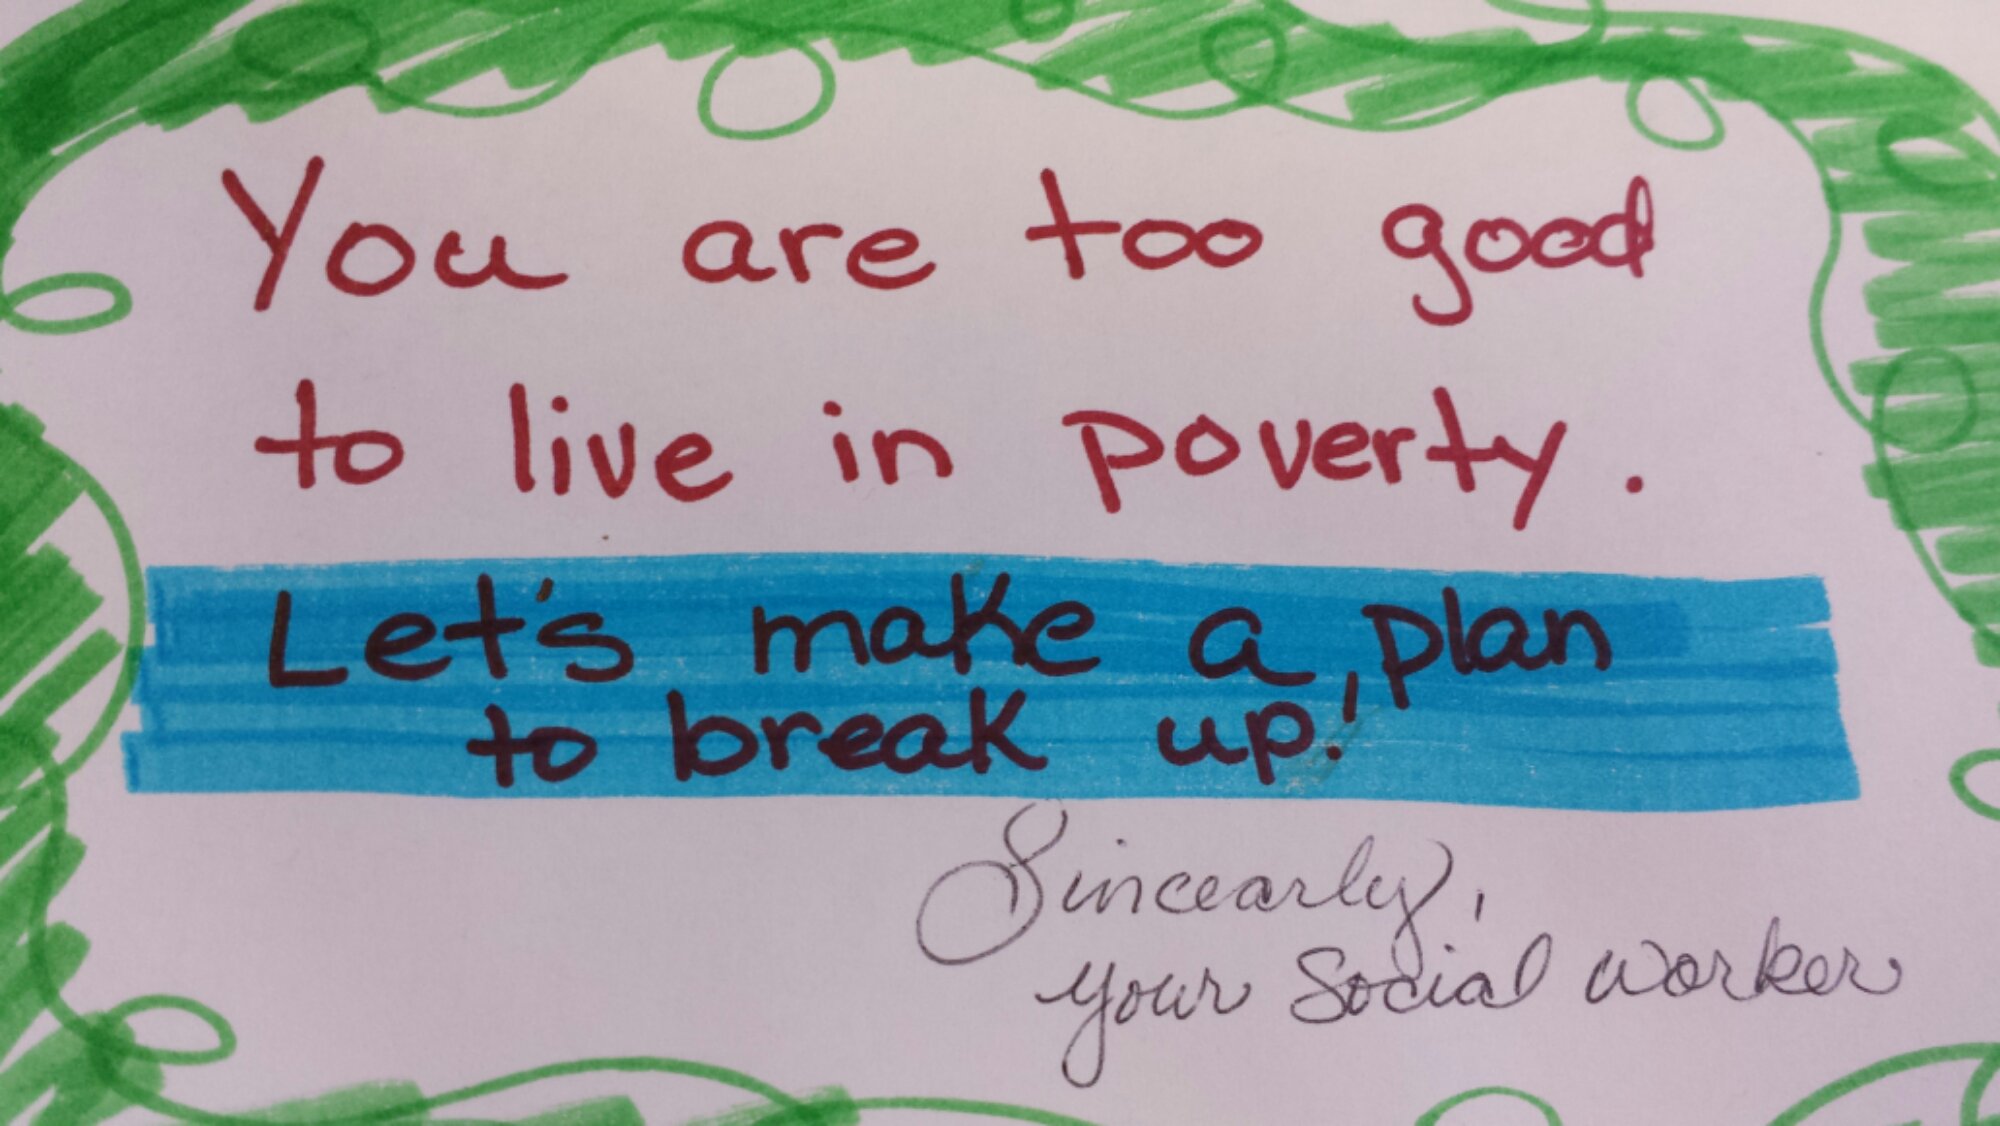 You are too good
to live in poverty.
Let's make a plan
to break up!
Sincearly,
your Social worker